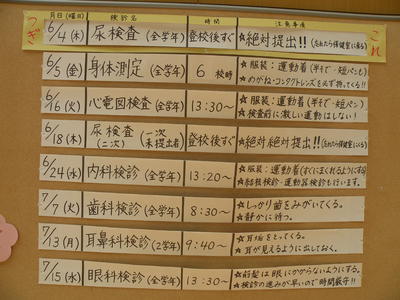 月日(曜日) 検診名 時間 注意事項
つぎ
これ
6/4(木) 尿検査(全学年) 登校後すぐ ★絶対提出!!(忘れたら保健室に来る)
6/5(金) 身体測定(全学年) 6校時 ★服装:運動着(半そで・短パンも)
★めがね・コンタクトレンズを必ず持ってくる!!
6/16(火) 心電図検査(全学年) 13:30〜 ★服装:運動着(半そで・短パン)
★検査前に激しい運動はしない!
6/18(木) 尿検査(二次)(一次未提出者) 登校後すぐ ★絶対絶対提出!!(忘れたら保健室に来る)
6/24(水) 内科検診(全学年) 13:20〜 ★服装:運動着(すぐにまくれるようにする)
★結核検診・運動器検診も行います。
7/7(火) 歯科検診(全学年) 8:30〜 ★しっかり歯をみがいてくる。
★静かに待つ。
7/13(月) 耳鼻科検診(2学年) 9:40〜 ★耳垢をとってくる。
★耳が見えるように出しておく。
7/15(水) 眼科検診(全学年) 13:30〜 ★前髪は眼にかからないようにする。
★検診の進みが早いので時間厳守!!